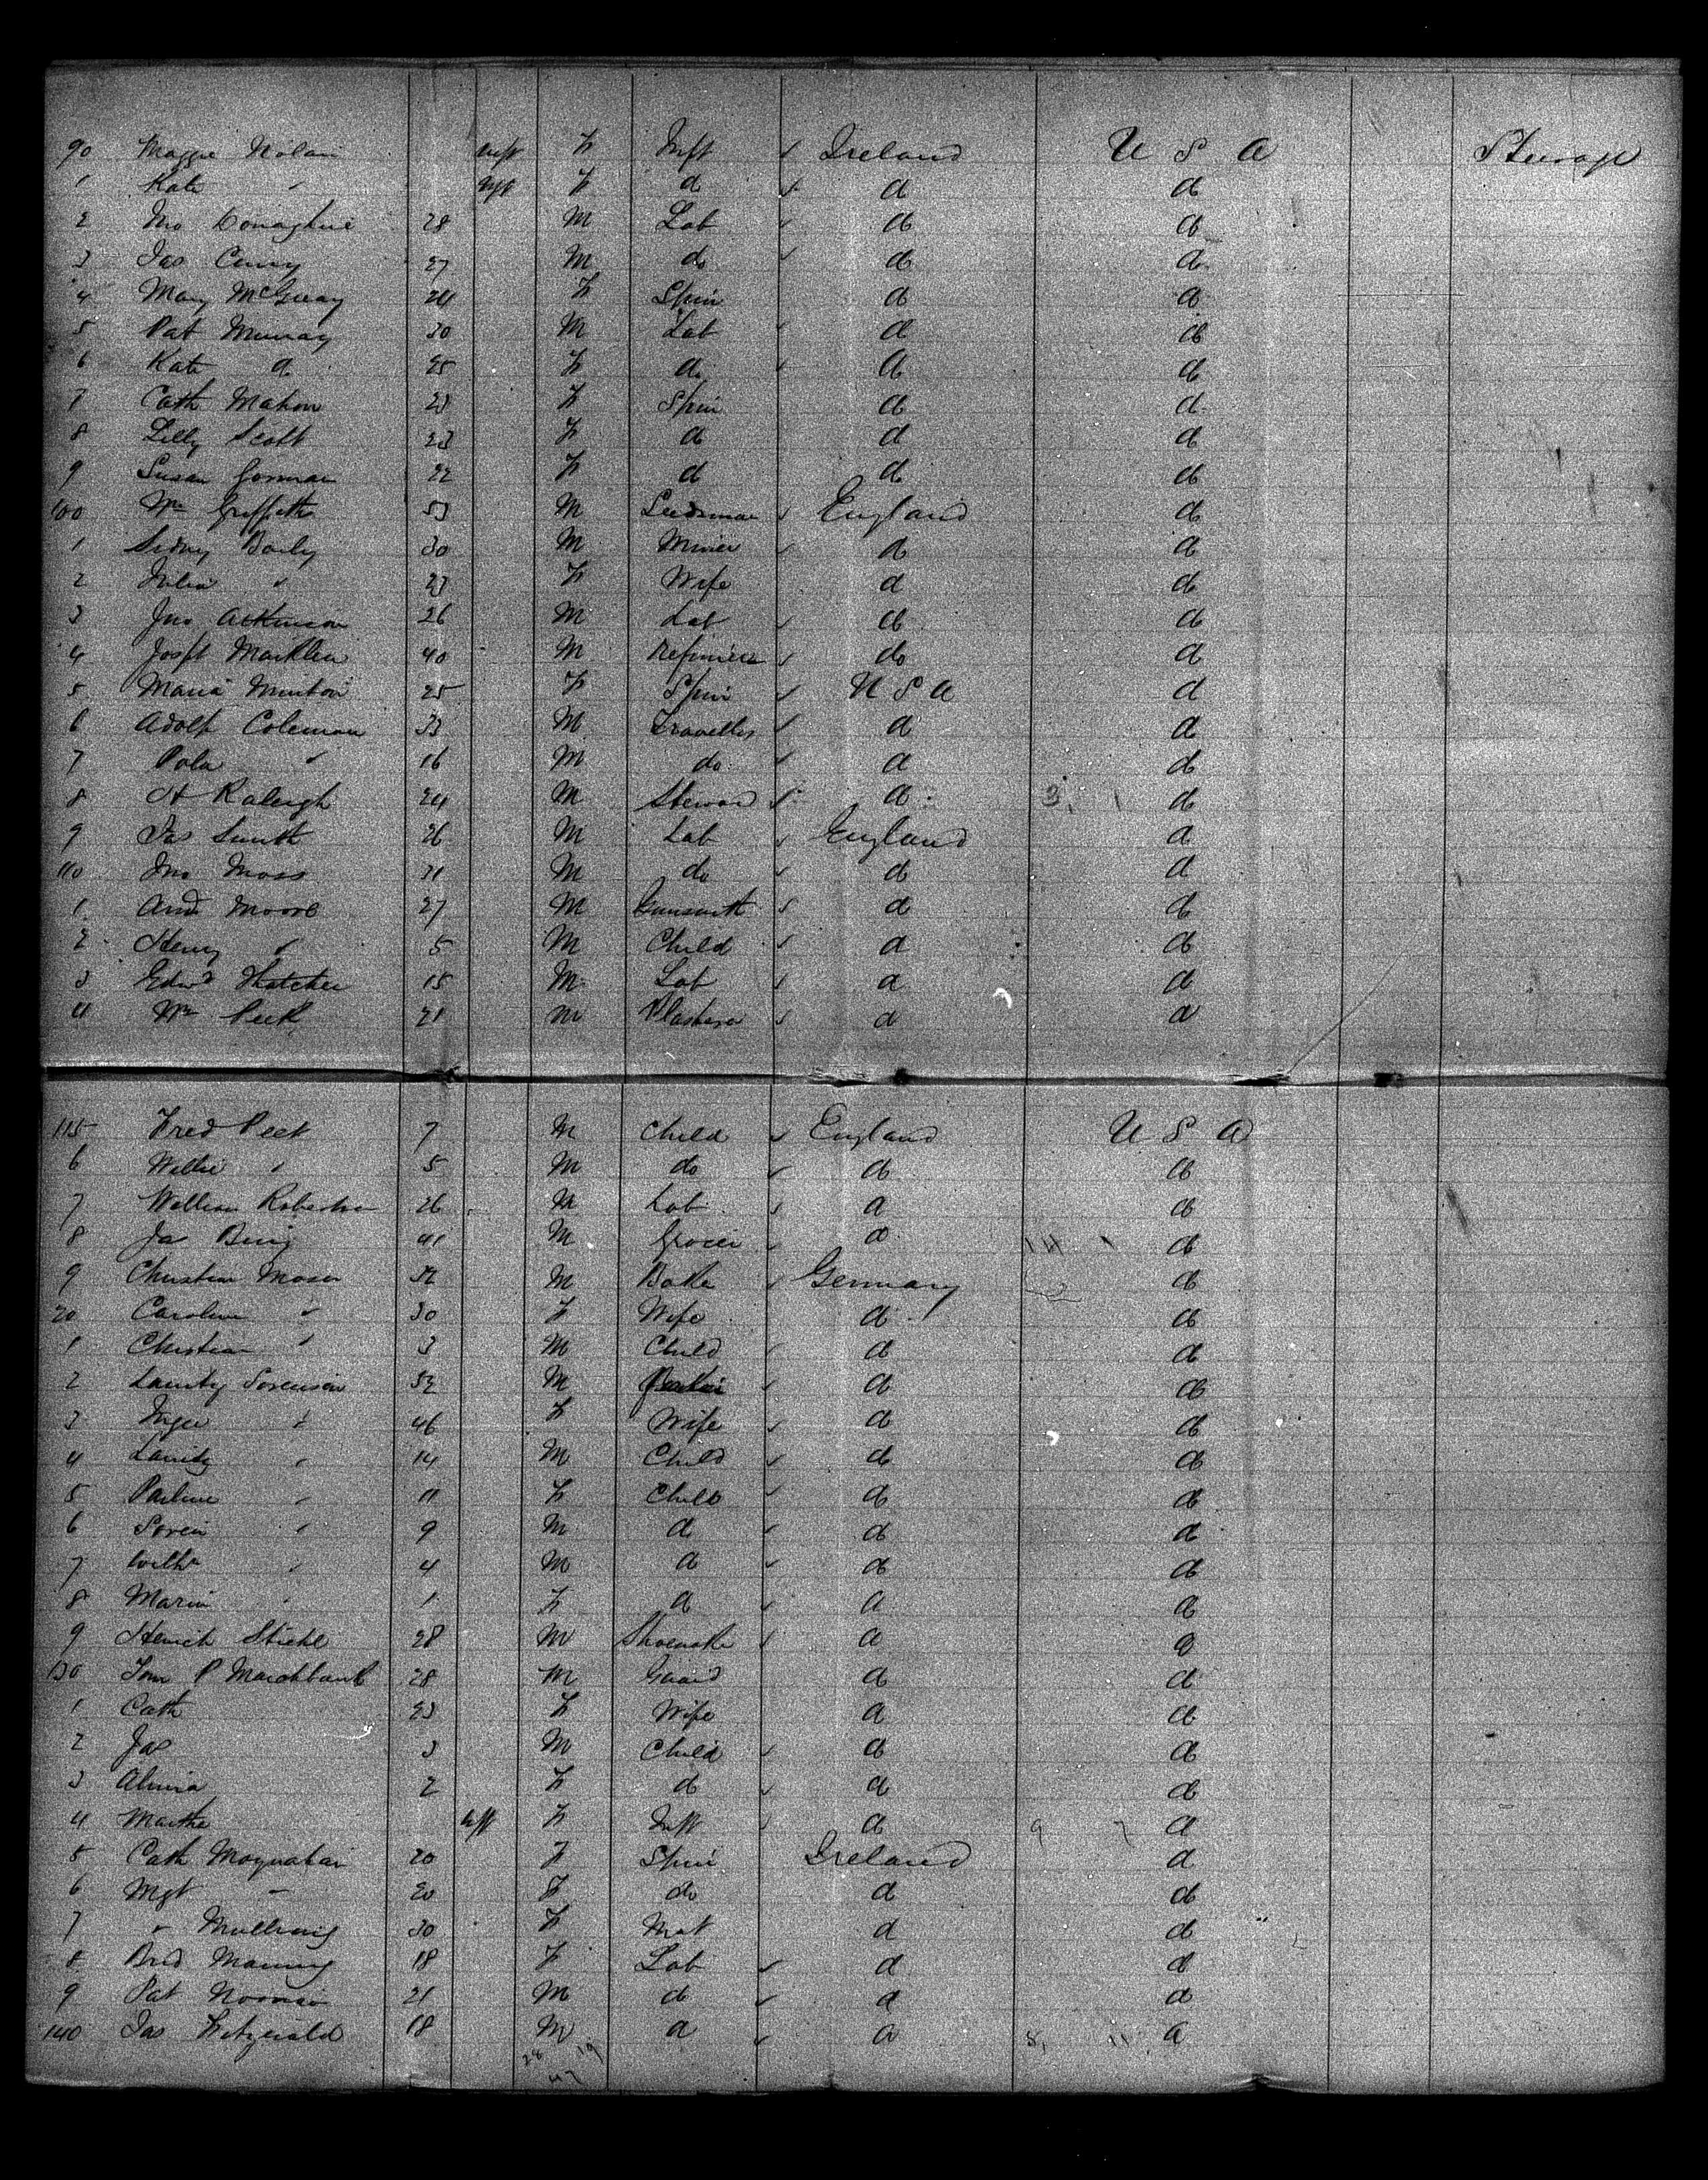 90 Maggie Nolan inft F Inft ✓ Ireland U S A Steerage
1 Kate " inft F d ✓ d d
2 Jno Donaghue 28 M Lab ✓ do do
3 Jas Curry 27 M do ✓ do do
4 Mary 24 F Spin d d
5 Pat Murray 30 M Lab ✓ d do
6 Kate d 25 F do ✓ do do
7 Cath Mahon 23 F Spin do d
8 Lilly Scott 23 F do d d
9 Susan Gorman 22 F d d do
100 Wm Griffith 53 M ✓ England d
1 Sidney Baily 30 M Miner ✓ do do
2 Julia " 23 F Wife d do
3 Jno Atkinson 26 M Lab ✓ do do
4 Josph 40 M Refiner ✓ do d
5 Maria Minton 25 F Spin ✓ U S A d
6 Adolf Coleman 33 M Traveller ✓ d d
7 Pola " 16 M do ✓ d do
8 H Raleigh 24 M Steward ✓ d 3 1 do
9 Jas Smith 26 M Lab ✓ England d
110 Jno Moss 21 M do ✓ do d
1 And Moore 27 M Gunsmith ✓ d do
2 Henry " 5 M Child ✓ d do
3 Edwd Thatcher 15 M Lab ✓ d d
4 Wm Peek 21 M Plasterer ✓ d d
115 Fred Peek 7 M Child ✓ England U S A
6 Willie " 5 M do ✓ do do
7 William Robertson 26 M Lab ✓ d do
8 Jas 41 M Grocer ✓ d 14 1 do
9 Christian Moser 32 M Baker ✓ Germany do
20 Caroline " 30 F Wife d do
1 Christian " 3 M Child ✓ d do
2 Sorensen 52 M ✓ d do
3 Inger " 46 F Wife ✓ d do
4 " 14 M Child ✓ do do
5 Pauline " 11 F Child ✓ do do
6 Soren " 9 M d ✓ do d
7 Wilhm " 4 M d ✓ do do
8 Marin " 1 F d ✓ d do
9 Henrich Stiehl 28 M Shoemaker ✓ d d
130 P Marchbank 28 M Guard d d
1 Cath 23 F Wife d do
2 Jas 3 M Child ✓ do do
3 Almira 2 F do ✓ d do
4 Martha inft F Inft ✓ do 9 7 d
5 Cath Moynahan 20 F Spin Ireland d
6 Mgt " 20 F do d do
7 " 30 F Mat d do
8 Brid Manning 18 F Lab ✓ d d
9 Pat 21 M do ✓ d do
140 Jas Fitzgerald 18 M d ✓ d 8 11 d
28 19
47